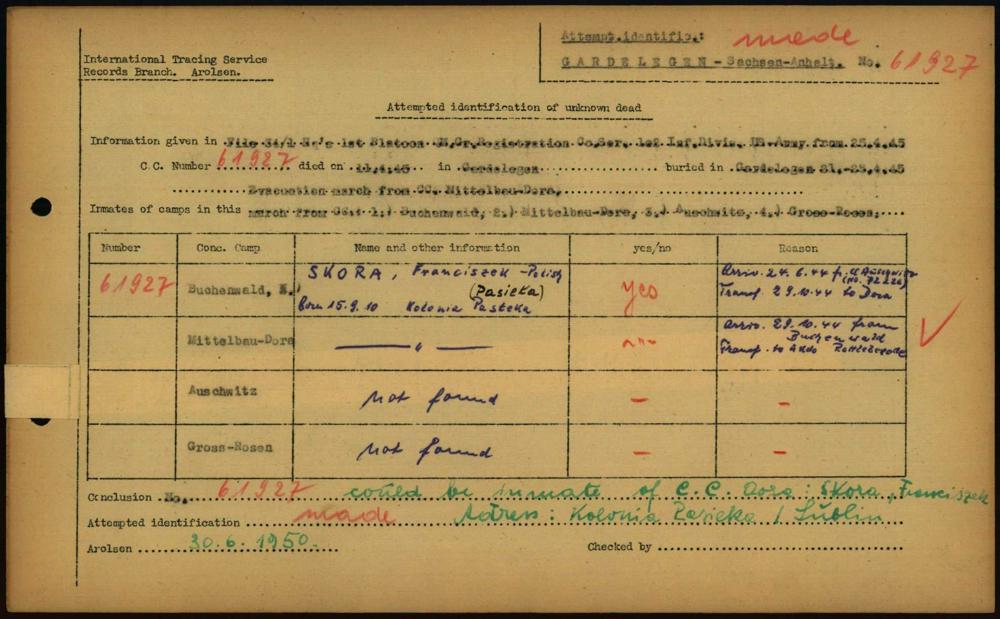 International Tracing Service
Records Branch. Arolsen.
Attempt.identific.: made
GARDELEGEN - Sachsen-Anhalt. No. 61927
Attempted identification of unknown dead
Information given in File 34/1 1st Platoon Gr.Registration Co. Inf.Divis. US-Army from 25.4.45
C.C. Number 61927 died on 11.4.45 in Gardelegen buried in Gardelegen 21.-25.4.45
Evacuation march from CC. Mittelbau-Dora,
Inmates of camps in this march from CC.: 1.) Buchenwald, 2.) Mittelbau-Dora, 3.) Auschwitz, 4.) Gross-Rosen;
Number Conc. Camp Name and other information yes/no Reason
61927 Buchenwald, SKORA, Franciszek - Polish yes Arriv. 24.6.44 fr.
(Pasieka)
Born 15.9.10 Kolonia Pasieka Transf. 29.10.44 to Dora
Mittelbau-Dora — " — Arriv. 29.10.44 from
Buchenwald
Transf. to Kdo Rottleberode
Auschwitz not found – –
Gross-Rosen not found – –
Conclusion No. 61927 could be inmate of C.C. Dora: Skora, Franciszek
Attempted identification made Adress: Kolonia Pasieka / Lublin
Arolsen 30.6.1950. Checked by